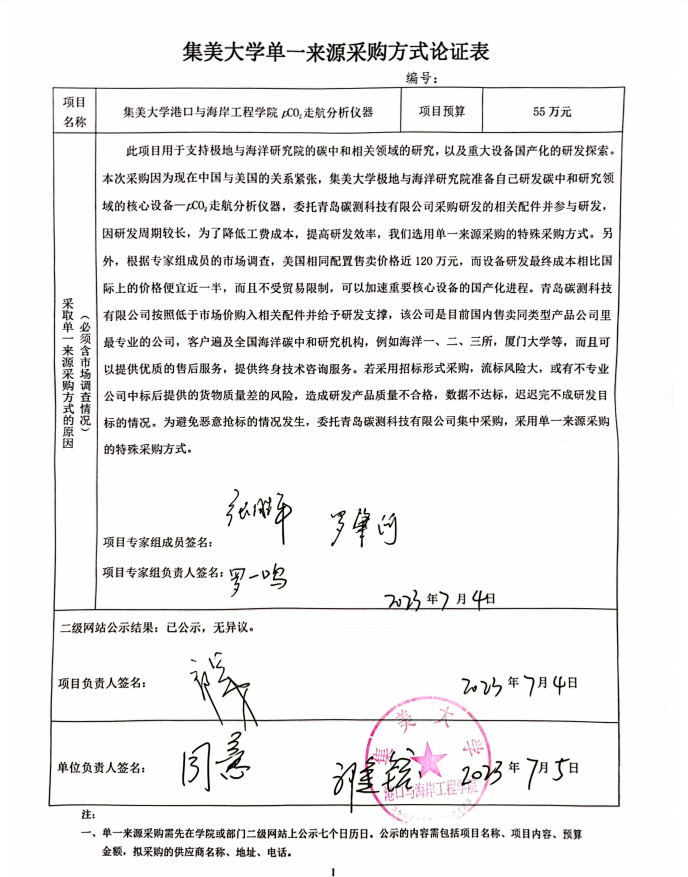 集美大学单一来源采购方式论证表
编号：
项目名称
集美大学港口与海岸工程学院 pCO₂走航分析仪器
项目预算
55 万元
采取单一来源采购方式的原因
（必须含市场调查情况）
此项目用于支持极地与海洋研究院的碳中和相关领域的研究，以及重大设备国产化的研发探索。
本次采购因为现在中国与美国的关系紧张，集美大学极地与海洋研究院准备自己研发碳中和研究领
域的核心设备—pCO₂走航分析仪器，委托青岛碳测科技有限公司采购研发的相关配件并参与研发，
因研发周期较长，为了降低工费成本，提高研发效率，我们选用单一来源采购的特殊采购方式。另
外，根据专家组成员的市场调查，美国相同配置售卖价格近 120 万元，而设备研发最终成本相比国
际上的价格便宜近一半，而且不受贸易限制，可以加速重要核心设备的国产化进程。青岛碳测科技
有限公司按照低于市场价购入相关配件并给予研发支撑，该公司是目前国内售卖同类型产品公司里
最专业的公司，客户遍及全国海洋碳中和研究机构，例如海洋一、二、三所，厦门大学等，而且可
以提供优质的售后服务，提供终身技术咨询服务。若采用招标形式采购，流标风险大，或有不专业
公司中标后提供的货物质量差的风险，造成研发产品质量不合格，数据不达标，迟迟完不成研发目
标的情况。为避免恶意抢标的情况发生，委托青岛碳测科技有限公司集中采购，采用单一来源采购
的特殊采购方式。
项目专家组成员签名：
项目专家组负责人签名：罗一鸣
2023 年 7 月 4 日
二级网站公示结果：已公示，无异议。
项目负责人签名：
2023 年 7 月 4 日
单位负责人签名：
2023 年 7 月 5 日
集美大学
港口与海岸工程学院
注：
一、单一来源采购需先在学院或部门二级网站上公示七个日历日。公示的内容需包括项目名称、项目内容、预算
金额，拟采购的供应商名称、地址、电话。
1